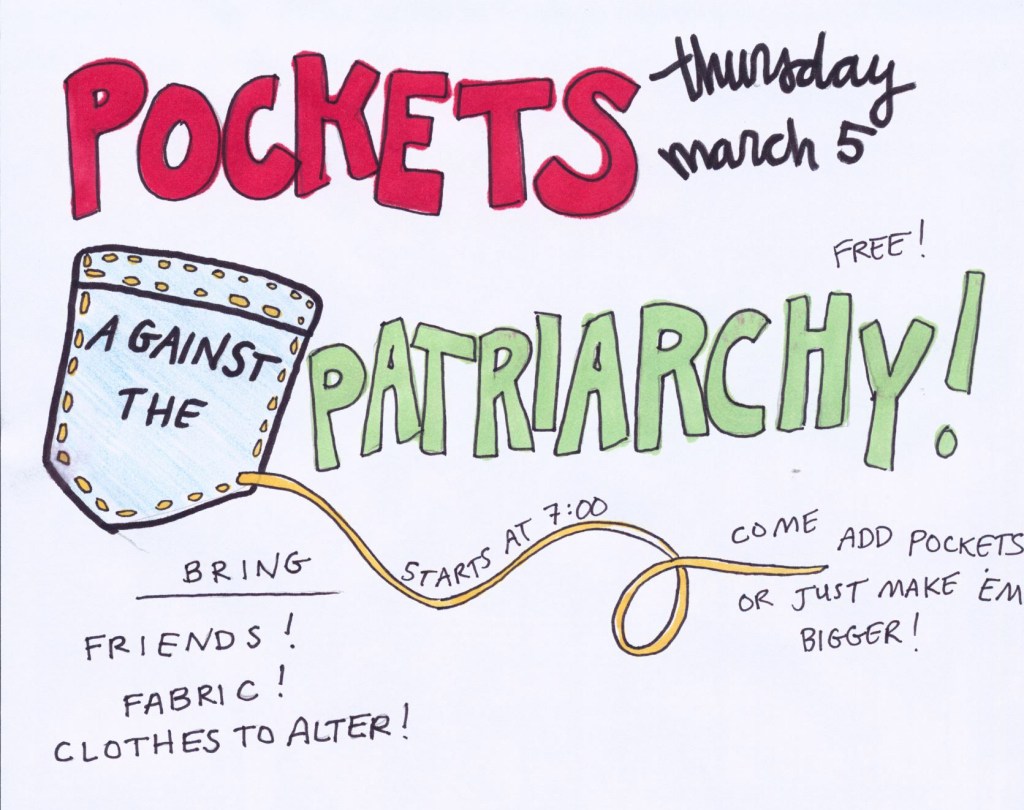 POCKETS
thursday
march 5
FREE!
AGAINST
THE
PATRIARCHY!
STARTS AT 7:00
COME ADD POCKETS
OR JUST MAKE 'EM
BIGGER!
BRING
FRIENDS!
FABRIC!
CLOTHES TO ALTER!